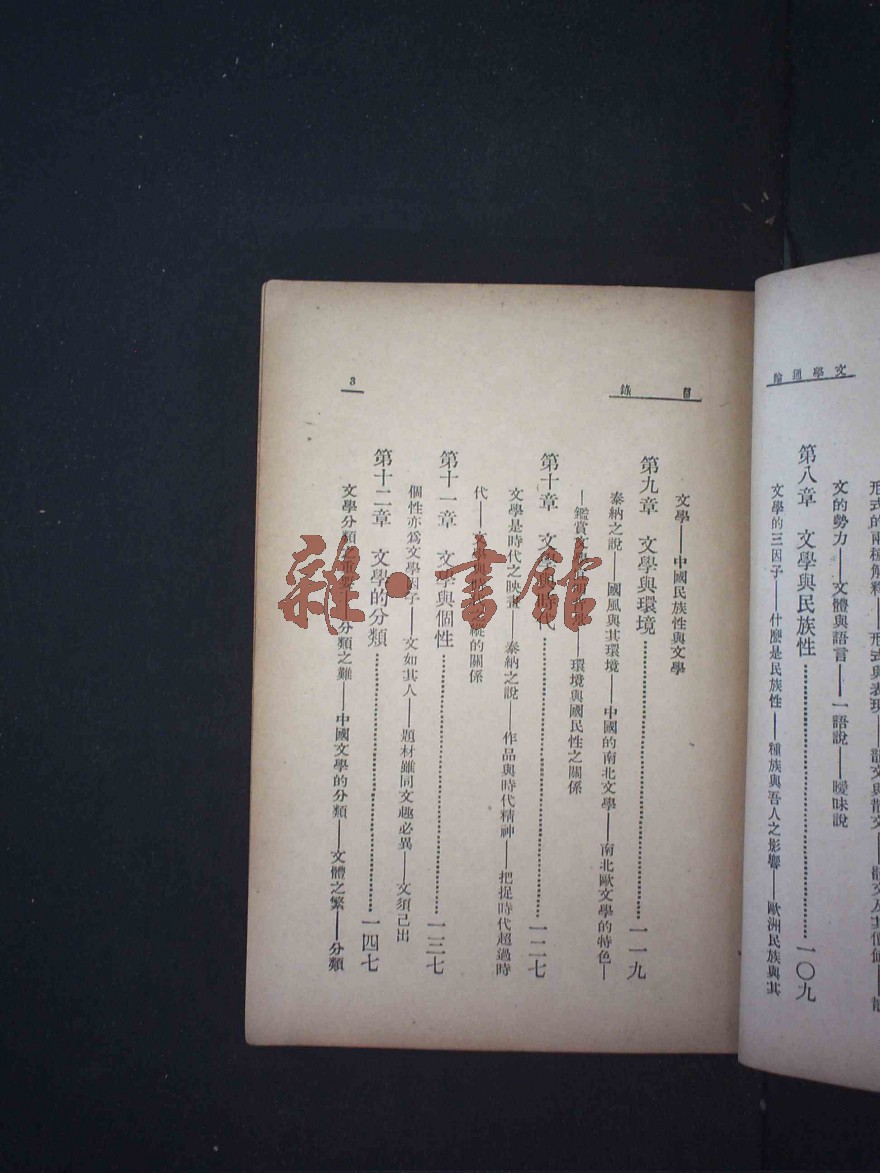 文學通論
形式的兩種解釋——形式與表現——韻文與散文——
文的勢力——文體與語言——一語說——曖味說
第八章 文學與民族性……一〇九
文學的三因子——什麼是民族性——種族與吾人之影響——歐洲民族與其
目錄
文學——中國民族性與文學
第九章 文學與環境……一一九
泰納之說——國風與其環境——中國的南北文學——南北歐文學的特色—
—鑑賞文學——環境與國民性之關係
第十章 文學與時代……一二七
文學是時代之映——泰納之說——作品與時代精神——把捉時代超過時
代——文學與的關係
第十一章 文學與個性……一三七
個性亦爲文學因子——文如其人——題材雖同文趣必異——文須己出
第十二章 文學的分類……一四七
文學分類之——分類之難——中國文學的分類——文體之繁——分類
3
雜·書館